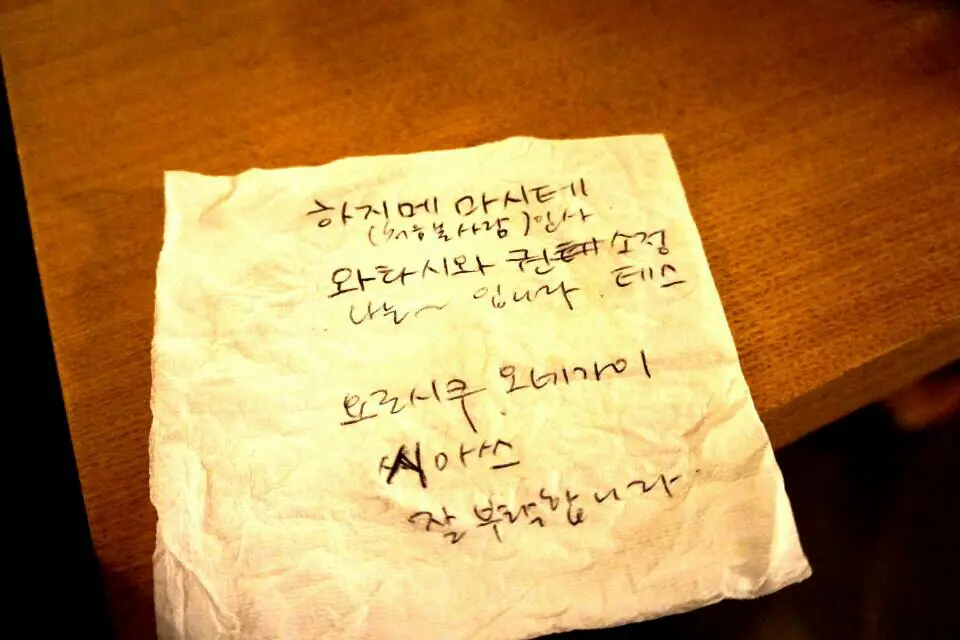 하지메 마시테
(처음볼사람)인사
와타시와 권 소정
나는~ 입니다. 테스
요로시쿠 오네가이
시마쓰
잘 부탁합니다.